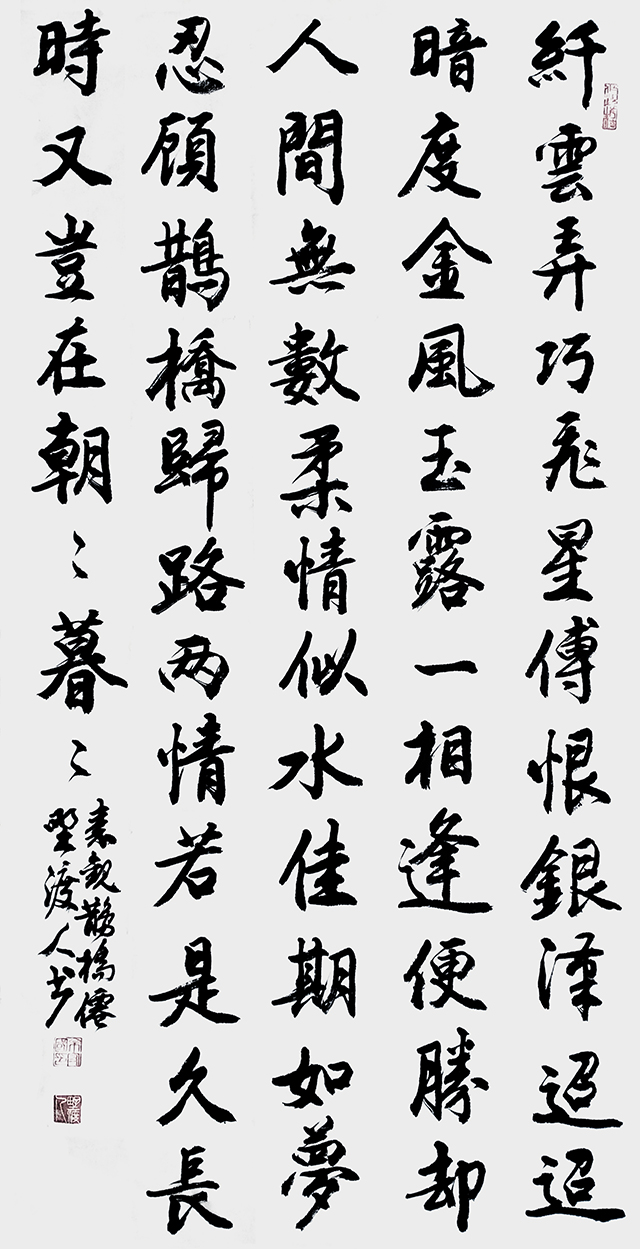 纤雲弄巧飛星傳恨銀漢迢迢
暗度金風玉露一相逢便勝却
人間無數柔情似水佳期如夢
忍顧鵲橋歸路两情若是久長
時又豈在朝〻暮〻
秦觀鵲橋僊
野渡人书